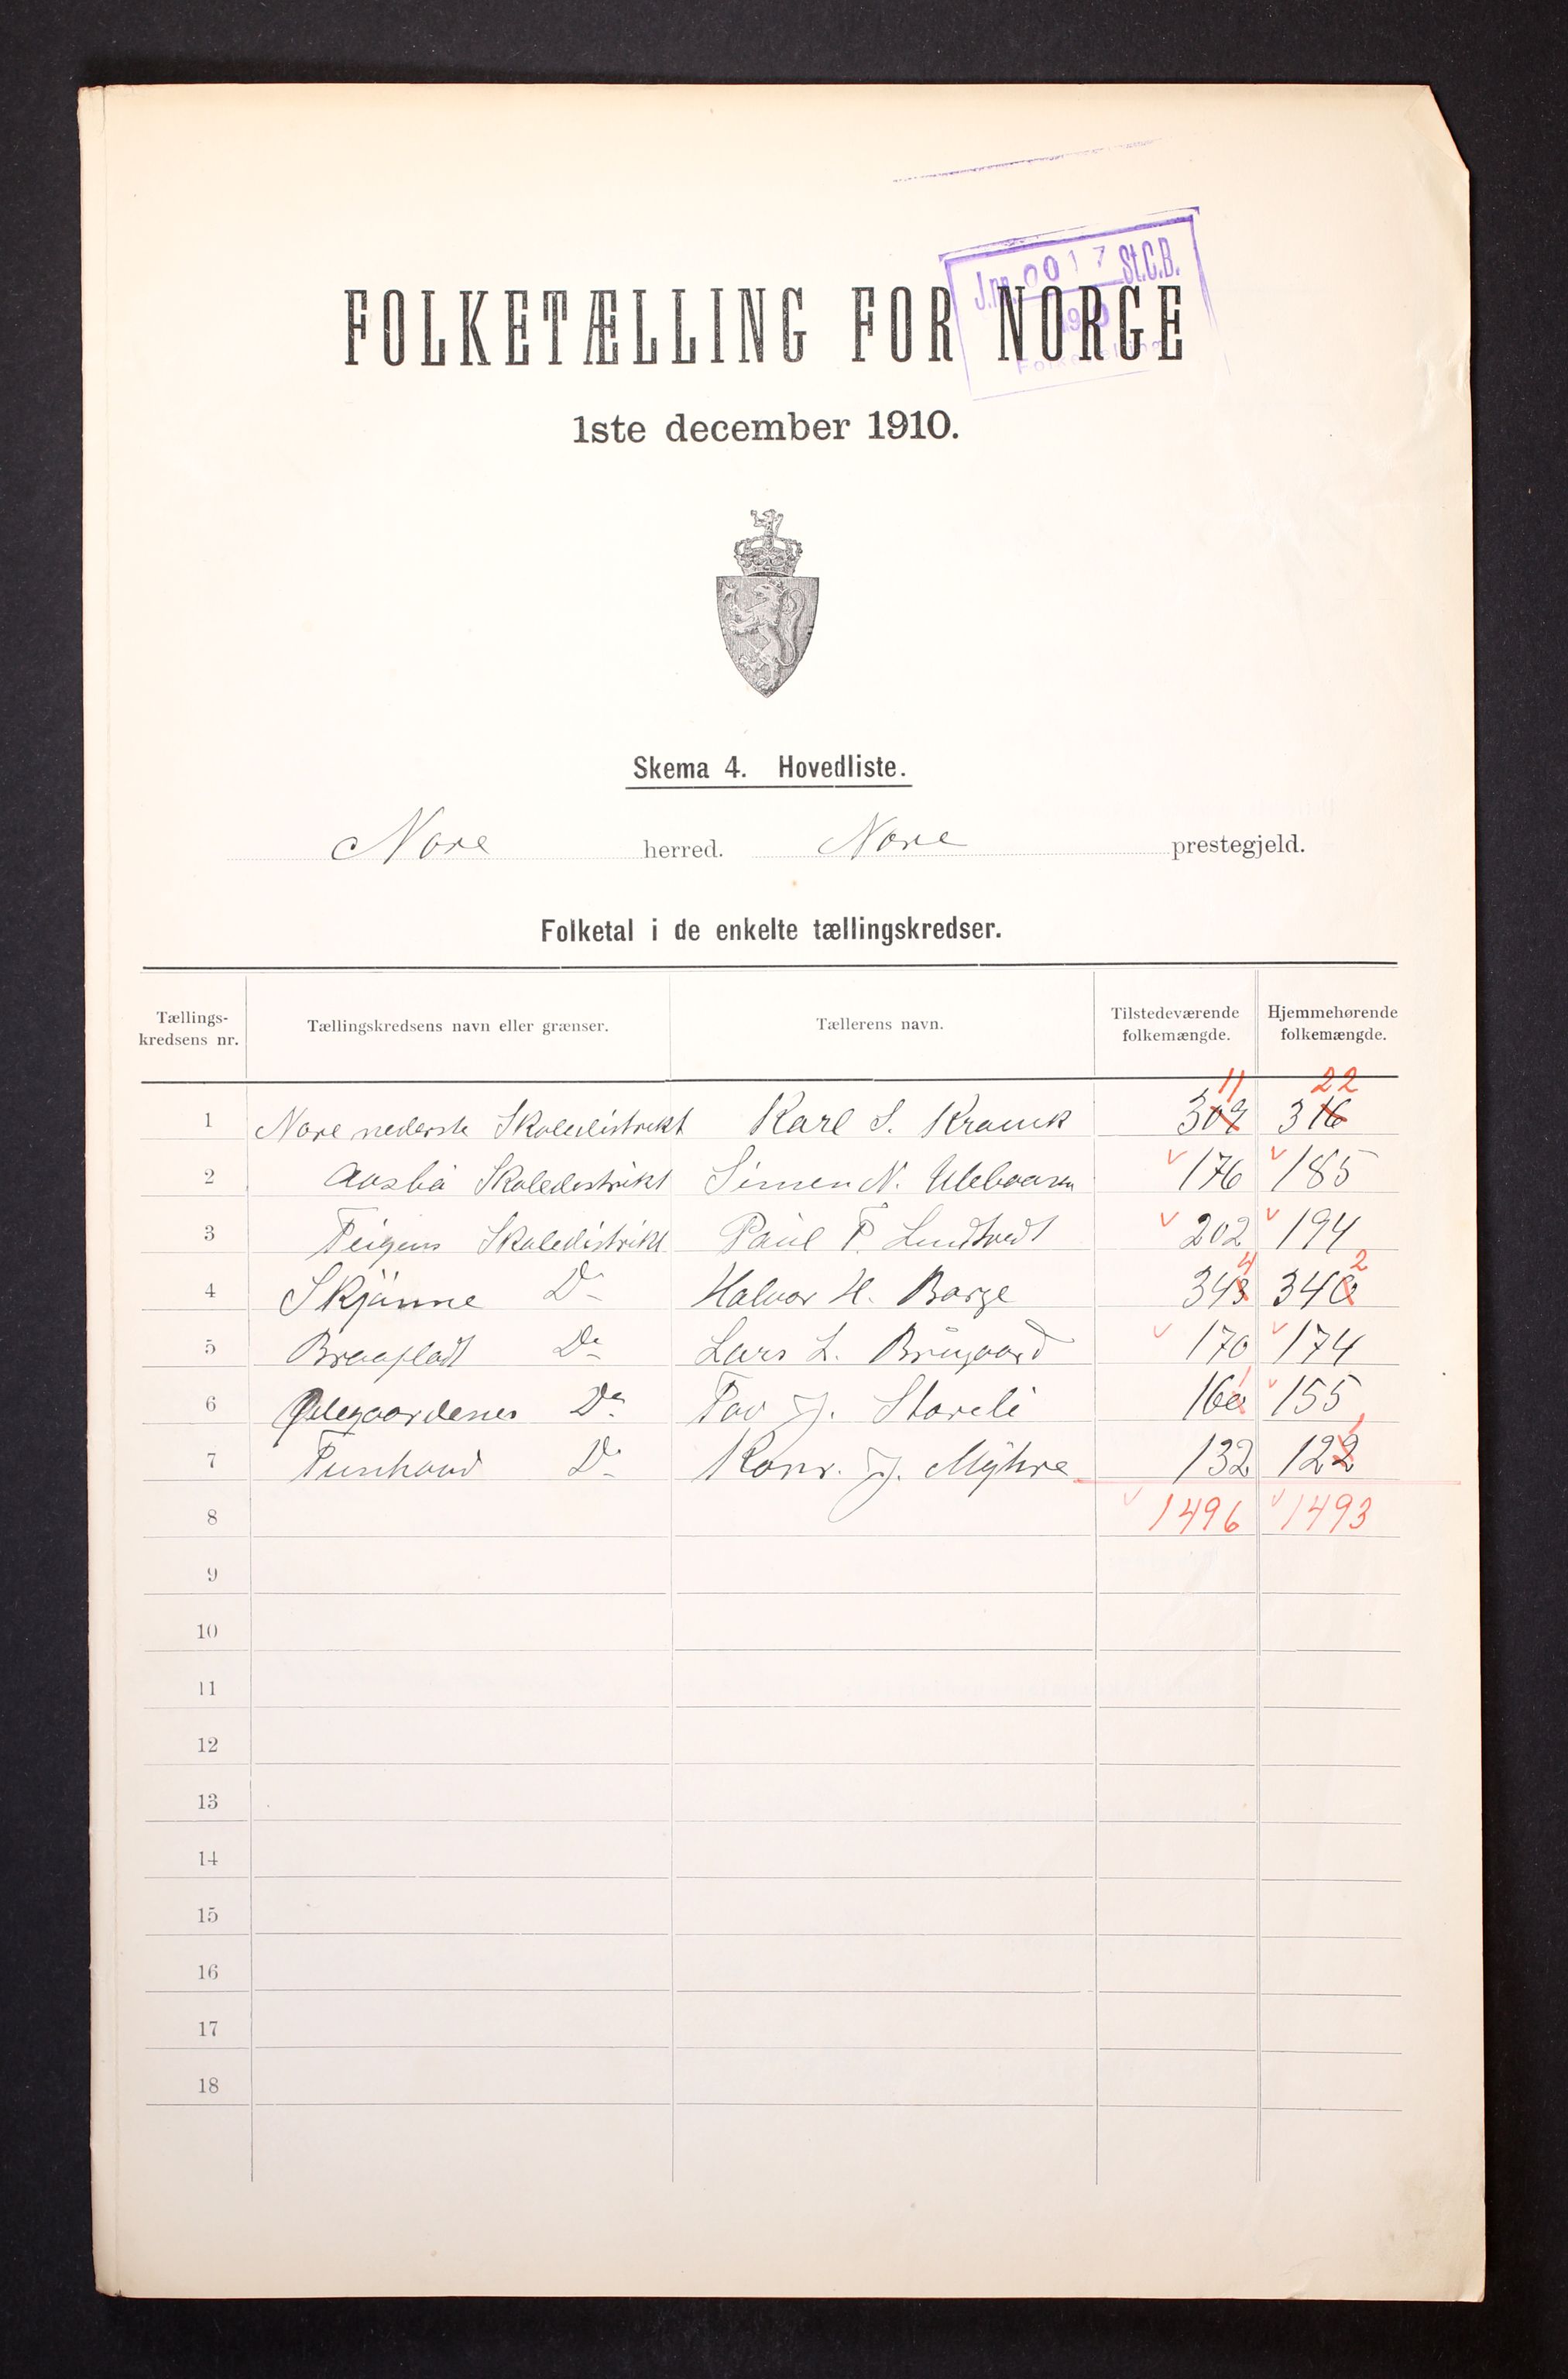 J.nr. 0017 St.C.B.
1910
Folketælling
FOLKETÆLLING FOR NORGE
1ste december 1910.
Skema 4. Hovedliste.
Nore herred. Nore prestegjeld.
Folketal i de enkelte tællingskredser.
Tællings-kredsens nr. Tællingskredsens navn eller grænser. Tællerens navn. Tilstedeværende folkemængde. Hjemmehørende folkemængde.
11 22
1 Nore nederste Skoledistrikt Karl S. 309 316
2 Aasbö Skoledistrikt Simen N. 176 185
3 Teigens Skoledistrikt Paul T. Lindtvedt 202 194
4 2
4 Skjönne Do Halvor H. Borge 343 340
5 Do Lars L. Brügaard 170 174
1
6 Ølegaardenes Do Tov J. Storeli 160 155
1
7 Tunhovd Do Konr. J. Myhre 132 122
8 1496 1493
9
10
11
12
13
14
15
16
17
18